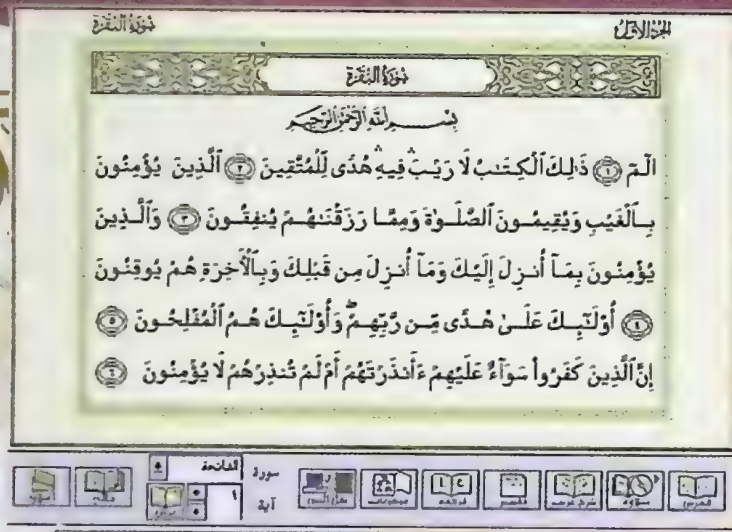 الجزء الأول
سورة البقرة
سورة البقرة
بسم الله الرحمن الرحيم
الٓمٓ ۝١ ذَٰلِكَ ٱلْكِتَـٰبُ لَا رَيْبَ ۛ فِيهِ ۛ هُدًى لِّلْمُتَّقِينَ ۝٢ ٱلَّذِينَ يُؤْمِنُونَ
بِٱلْغَيْبِ وَيُقِيمُونَ ٱلصَّلَوٰةَ وَمِمَّا رَزَقْنَـٰهُمْ يُنفِقُونَ ۝٣ وَٱلَّذِينَ
يُؤْمِنُونَ بِمَآ أُنزِلَ إِلَيْكَ وَمَآ أُنزِلَ مِن قَبْلِكَ وَبِٱلْأَخِرَةِ هُمْ يُوقِنُونَ
۝٤ أُوْلَـٰٓئِكَ عَلَىٰ هُدًى مِّن رَّبِّهِمْ ۖ وَأُوْلَـٰٓئِكَ هُمُ ٱلْمُفْلِحُونَ ۝٥
إِنَّ ٱلَّذِينَ كَفَرُواْ سَوَآءٌ عَلَيْهِمْ ءَأَنذَرْتَهُمْ أَمْ لَمْ تُنذِرْهُمْ لَا يُؤْمِنُونَ ۝٦
سورة الفاتحة
آية ١